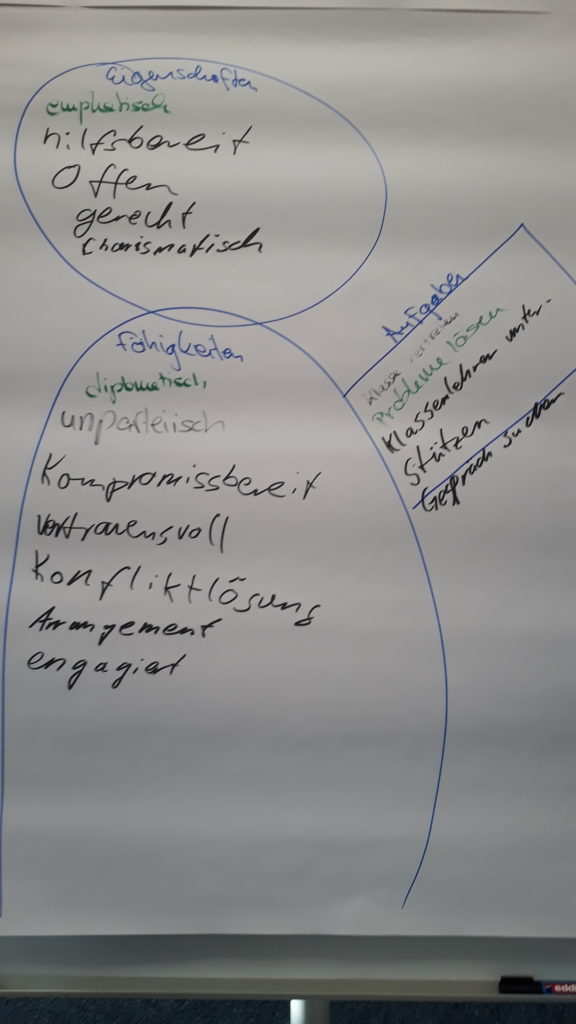 Eigenschaften
emphatisch
hilfsbereit
Offen
gerecht
Charismatisch
Fähigkeiten
diplomatisch
unparteiisch
Kompromissbereit
Vertrauensvoll
Konfliktlösung
Arrangement
engagiert
Aufgaben
Klasse vertreten
Probleme lösen
Klassenlehrer unter-
stützen
Gespräch suchen
edd